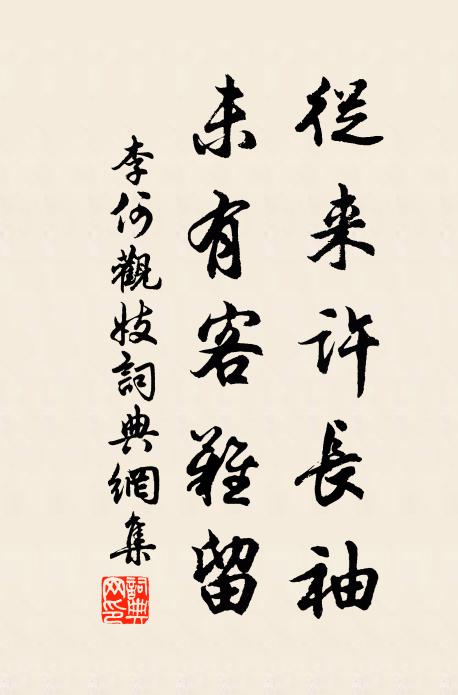 從来許長袖
未有客難留
李何觀妓詞典網集
詞典網印